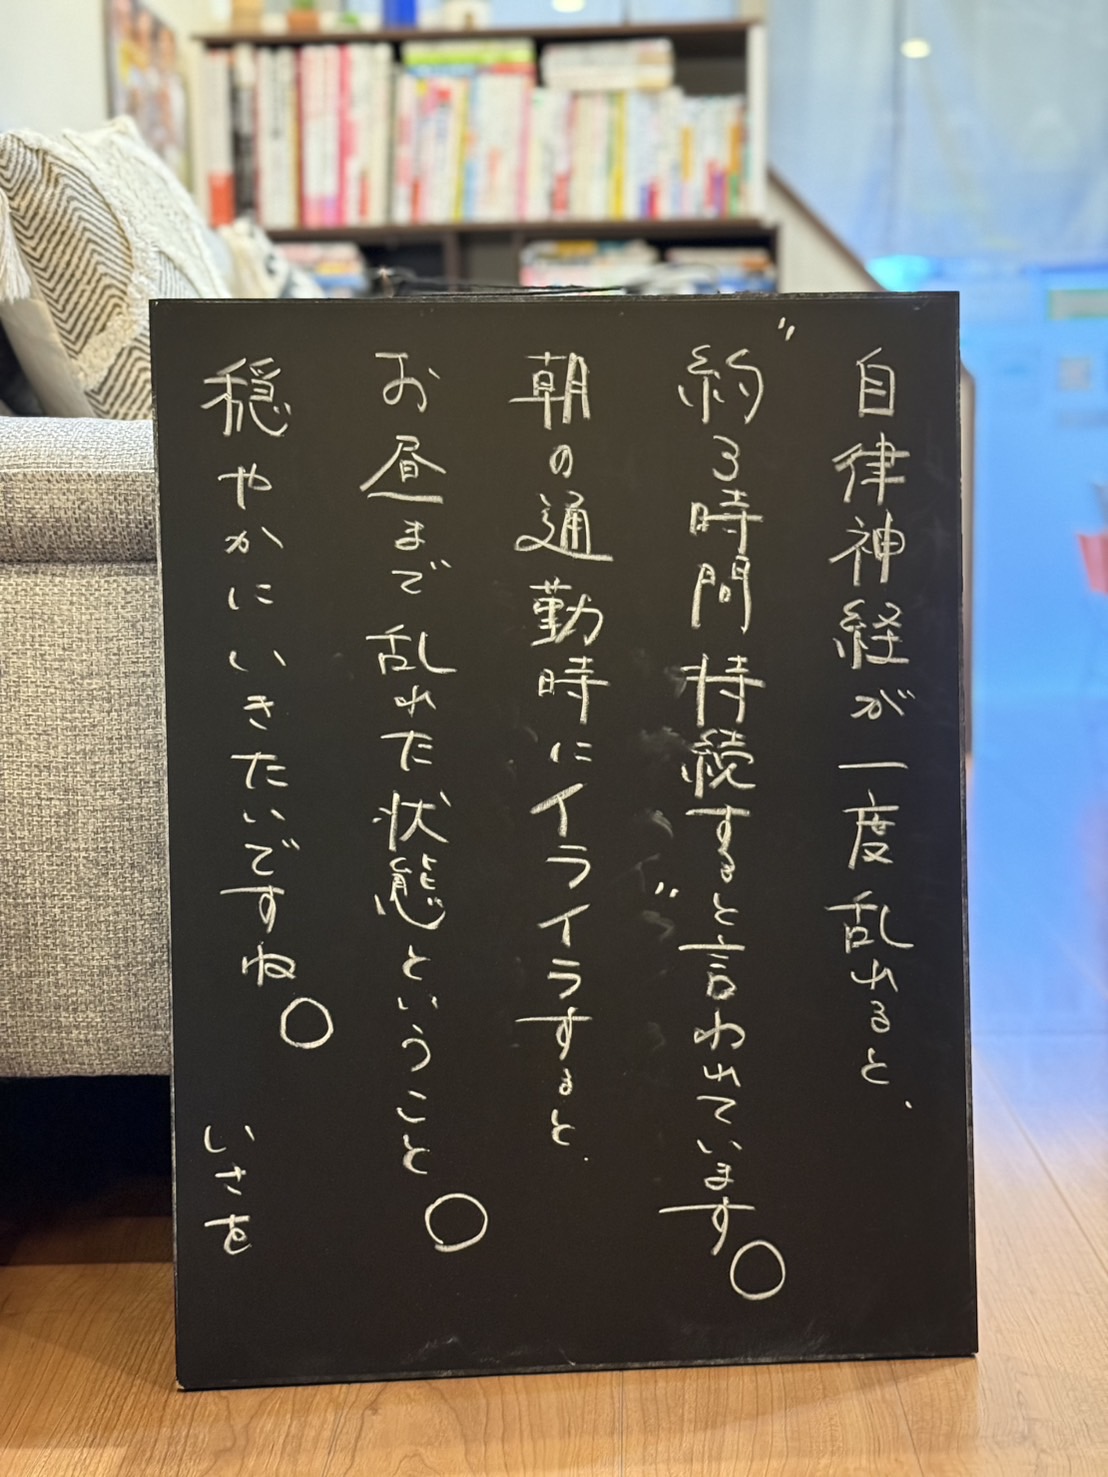 自律神経が一度乱れると、
"約3時間持続する"と言われています。
朝の通勤時にイライラすると、
お昼まで乱れた状態ということ。
穏やかにいきたいですね。
いさを